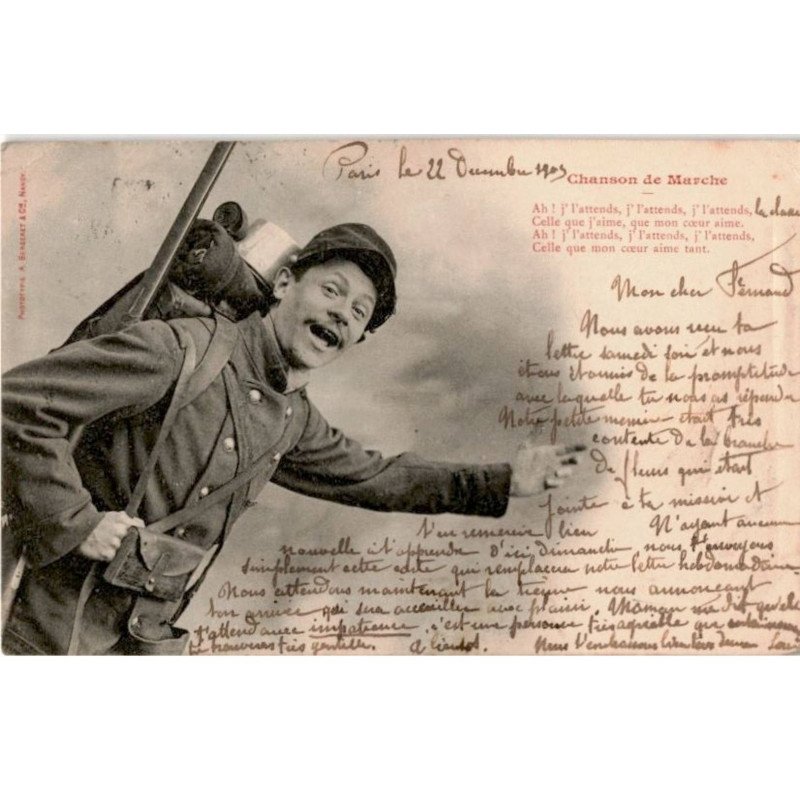 Paris le 22 Decembre 1903
Chanson de Marche
Ah ! j' l'attends, j' l'attends, j' l'attends, la classe
Celle que j'aime, que mon cœur aime.
Ah ! j' l'attends, j' l'attends, j' l'attends,
Celle que mon cœur aime tant.
PHOTOTYPIE A. BERGERET & Cie, NANCY
Mon cher Fernand
Nous avons reçu ta
lettre samedi soir et nous
étonnés de la promptitude
avec laquelle tu nous as répondu
Notre petite était très
contente de la branche
de fleurs qui était
jointe à ta missive et
t'en remercie bien N'ayant aucune
nouvelle à t'apprendre d'ici dimanche nous t'envoyons
simplement cette carte qui remplacera notre lettre hebdomadaire
Nous attendons maintenant la tienne nous annonçant
ton arrivée qui sera accueillie avec plaisir. Maman me dit qu'elle
t'attend avec impatience, c'est une personne très agréable que
tu trouveras très gentille. A bientot. Nous t'embrassons bien